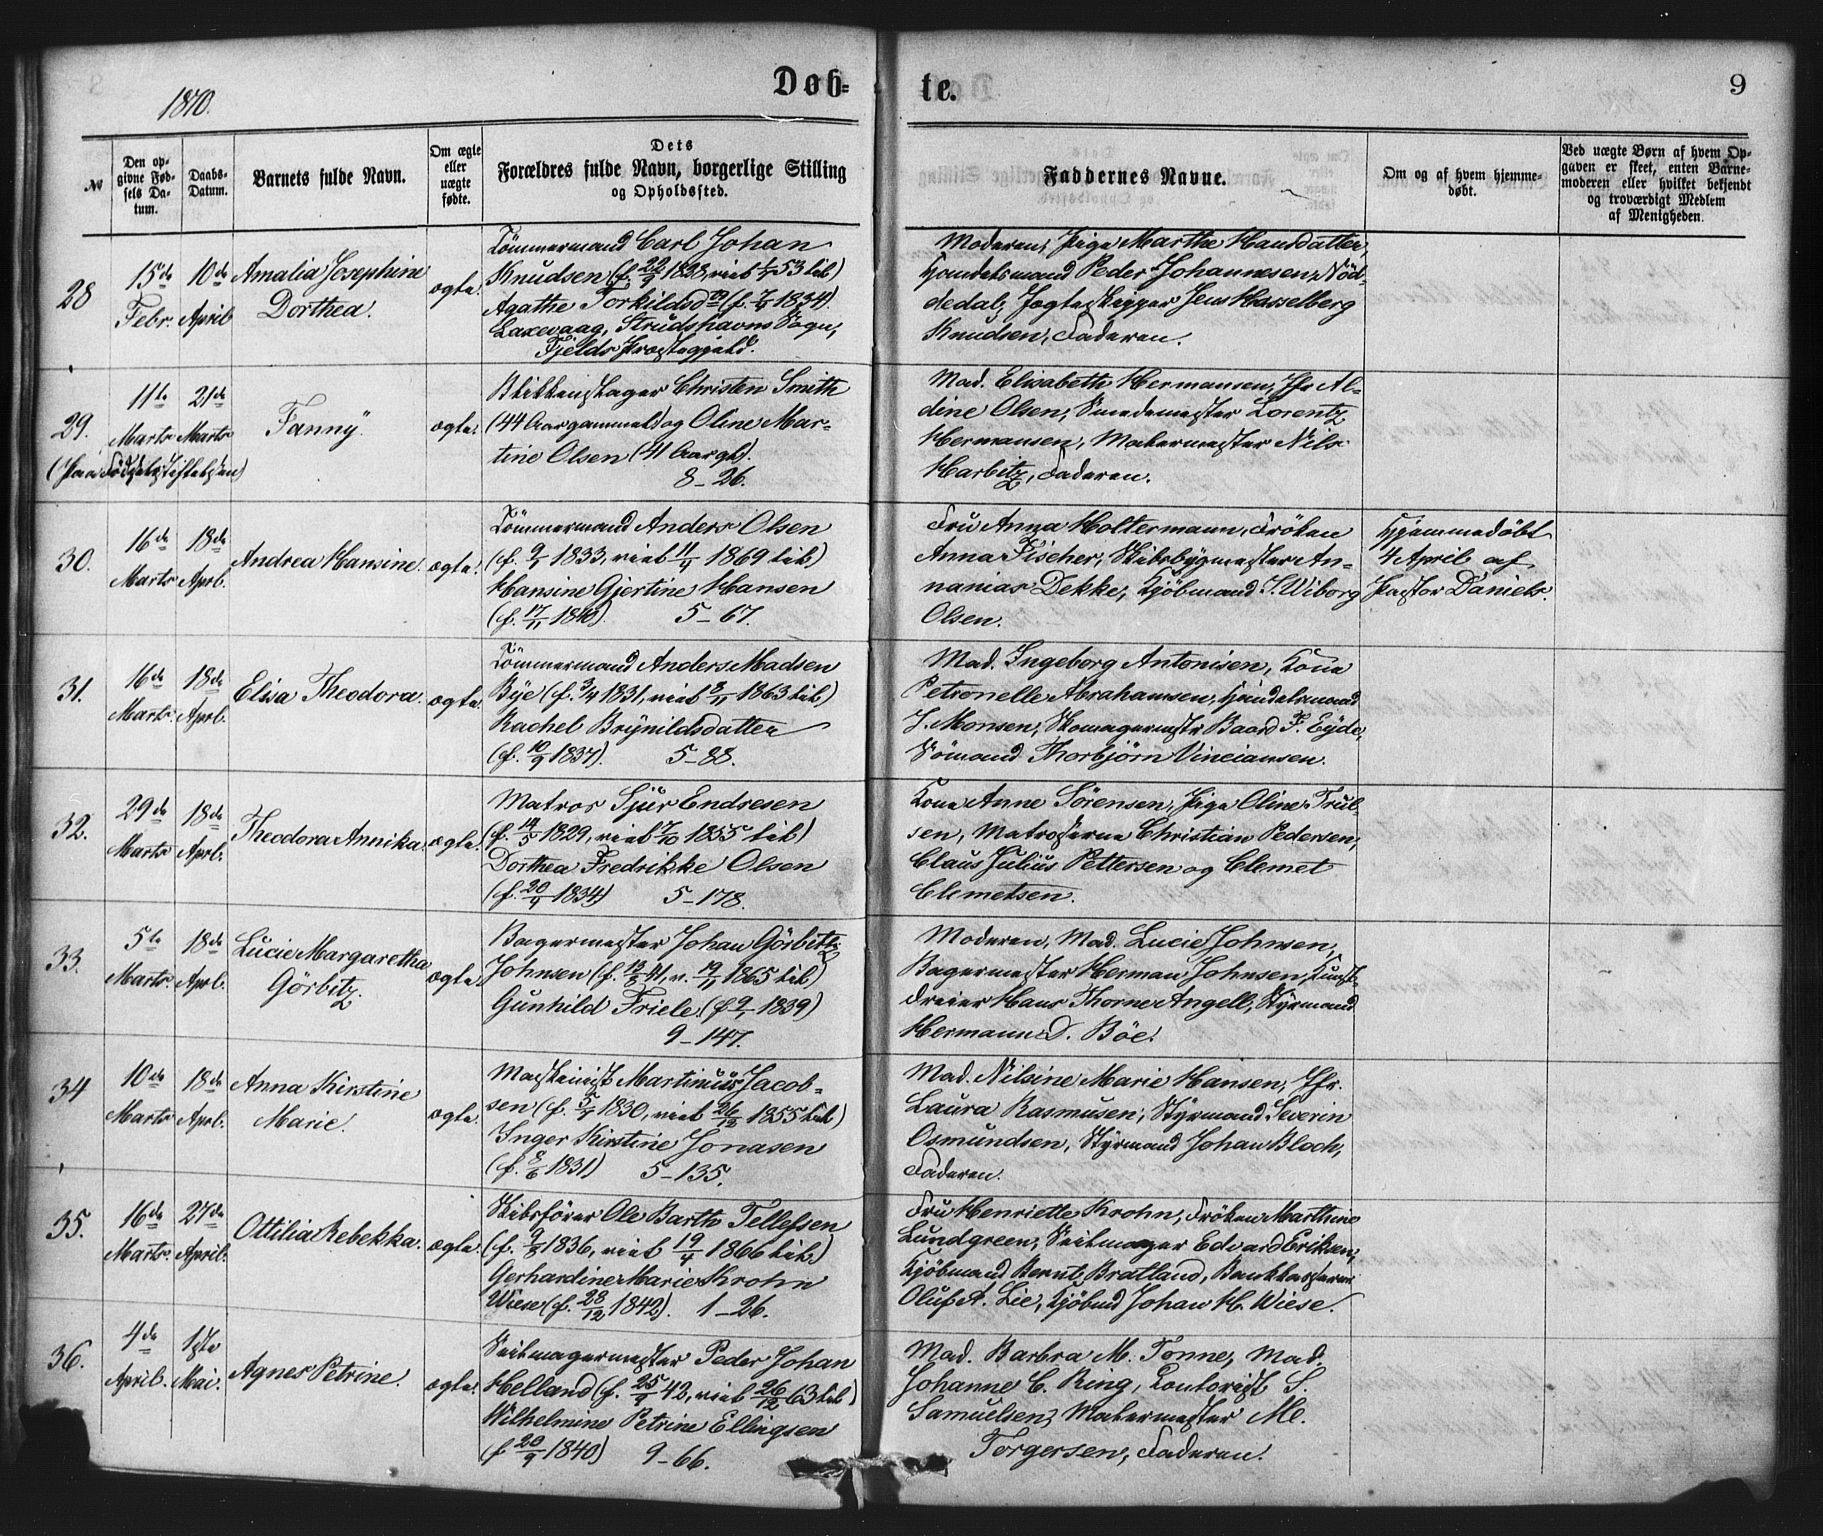 1870.
Døb-
te.
9
№
Den op-
givne Fød-
sels Da-
tum.
Daabs-
Datum.
Barnets fulde Navn.
Om ægte
eller
uægte
fødte.
Dets
Forældres fulde Navn, borgerlige Stilling
og Opholdssted.
Faddernes Navne.
Om og af hvem hjemme-
døbt.
Ved uægte Børn af hvem Op-
gaven er skeet, enten Barne-
moderen eller hvilket bekjendt
og troværdigt Medlem
af Menigheden.
28
15de
Febr.
10de
April
Amalia Josephine
Dorthea.
ægte.
Tømmermand Carl Johan
Knudsen (f. 22/9 1828, viet 1/7 53 til)
Agathe Torkildsdtr (f. 7/9 1834).
Laxevaag, Strudshavns Sogn,
Fjelds Præstegjeld.
Moderen, Pige Marthe Hansdatter,
Handelsmand Peder Johannesen, Nød-
dedal, Jagteskipper Jens Hasselberg
Knudsen, Faderen.
29.
11te
Marts
21de
Marts
(Paa Fødselsstiftelsen)
Fanny.
ægte.
Blikkenslager Christen Smith
(44 Aar gammel) og Oline Mar-
tine Olsen (41 Aar gl.).
8-26.
Mad. Elisabeth Hermansen, Jfr Al-
dine Olsen, Smedemester Lorentz
Hermansen, Malermester Nils
Harbitz, Faderen.
30.
16de
Marts
18de
Aprl.
Andrea Hansine.
ægte.
Tømmermand Anders Olsen
(f. 9/2 1833, viet 11/4 1869 til)
Hansine Gjertine Hansen
(f. 17/11 1840). 5-67.
Fru Anna Holtermann, Frøken
Anna Fischer, Skibsbygmester An-
nanias Dekke, Kjøbmand J. Wiborg
Olsen.
Hjemmedøbt
4 April af
Pastor Daniels.
31.
16de
Marts.
18de
Aprl.
Elisa Theodora.
ægte.
Tømmermand Anders Madsen
Bye (f. 3/4 1831, viet 8/11 1863 til)
Rachel Brynildsdatter
(f. 10/9 1837). 5-88.
Mad. Ingeborg Antonisen, Kone
Petronelle Abrahamsen, Handelsmand
J. Monsen, Skomagermstr Baard F. Eyde,
Sømand Thorbjørn Vinciansen.
32.
29de
Marts
18de
Aprl.
Theodora Annika.
ægte.
Matros Sjur Endresen
(f. 14/5 1829, viet 7/10 1855 til)
Dorthea Fredrikke Olsen
(f. 20/4 1834) 5-178.
Kone Anne Sørensen, Pige Oline Trul-
sen, Matroserne Christian Pedersen,
Claus Julius Pettersen og Clemet
Clemetsen.
33.
5te
Marts
18de
Aprl.
Lucie Margaretha
Görbitz.
ægte.
Bagermester Johan Görbitz
Johnsen (f. 13/8 41, v. 19/11 1865 til)
Gunhild Friele. (f 9/1 1839)
9-147.
Moderen, Mad. Lucie Johnsen,
Bagermester Herman Johnsen, Kunst-
dreier Hans Thorner Angell, Styrmand
Hermann D. Böe.
34
10de
Marts
18de
Aprl.
Anna Kirstine
Marie.
ægte.
Maskinist Martinius Jacob-
sen (f. 5/4 1830, viet 26/12 1855 til)
Inger Kirstine Jonasen
(f. 8/6 1831) 5-135.
Mad. Nilsine Marie Hansen, Jfr.
Laura Rasmusen, Styrmand Severin
Osmundsen, Styrmand Johan Bloch,
Faderen.
35.
16de
Marts.
27de
April.
Ottilia Rebekka.
ægte.
Skibsfører Ole Barth Tellefsen
(f. 9/8 1836, viet 19/4 1866 til)
Gerhardine Marie Krohn
Wiese (f. 28/12 1842). 1-26.
Fru Henriette Krohn, Frøken Marthine
Lundgreen, Seilmager Edvard Eriksen,
Kjøbmand Bernt Bratland, Bankkasserer
Oluf A. Lie, Kjøbmd Johan H. Wiese.
36.
4de
April.
1ste
Mai.
Agnes Petrine.
ægte.
Seilmagermester Peder Johan
Helland (f. 25/9 42, viet 26/12 63 til)
Wilhelmine Petrine Ellingsen
(f 20/9 1840) 9-66.
Mad. Barbra M. Tonne, Mad.
Johanne C. Ring, Kontorist S.
Samuelsen, Malermester M.
Torgersen, Faderen.